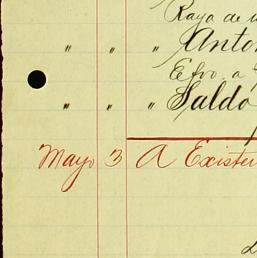 Rayo de
" " " Anton
Efvo. a
" " " Saldo
Mayo 3 A Existen